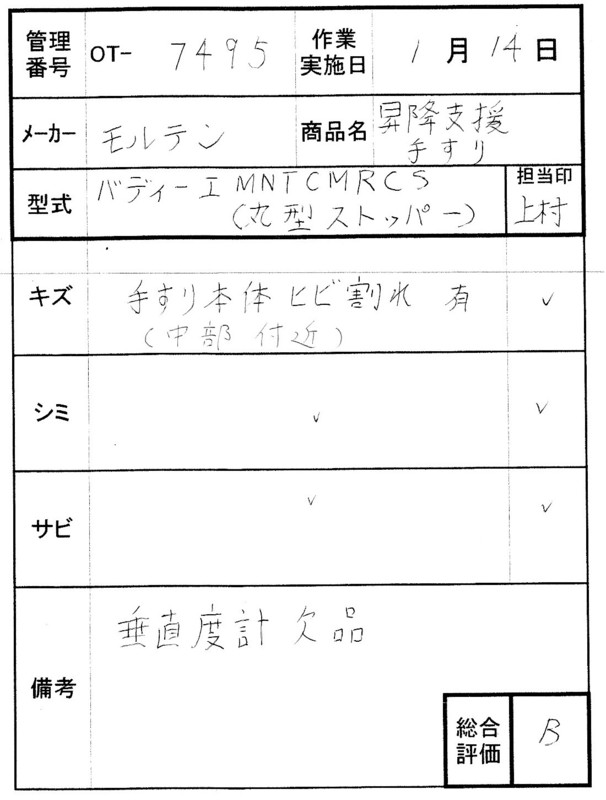 管理番号 OT- 7495 作業実施日 1月14日
メーカー モルテン 商品名 昇降支援手すり
型式 バディーI MNTCMRCS 担当印
(丸型ストッパー) 上村
キズ 手すり本体ヒビ割れ 有 ✓
(中部付近)
シミ ✓ ✓
サビ ✓ ✓
備考 垂直度計欠品
総合評価 B